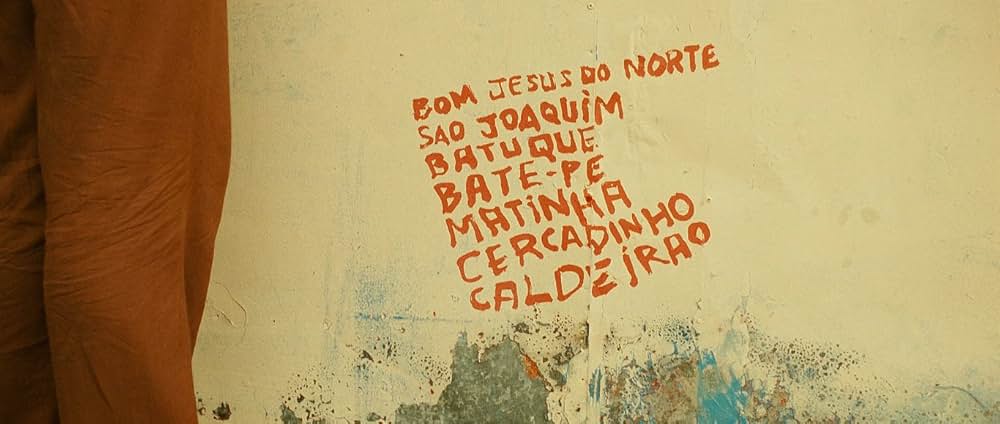 BOM JESUS DO NORTE
SAO JOAQUIM
BATUQUE
BATE-PE
MATINHA
CERCADINHO
CALDEIRAO